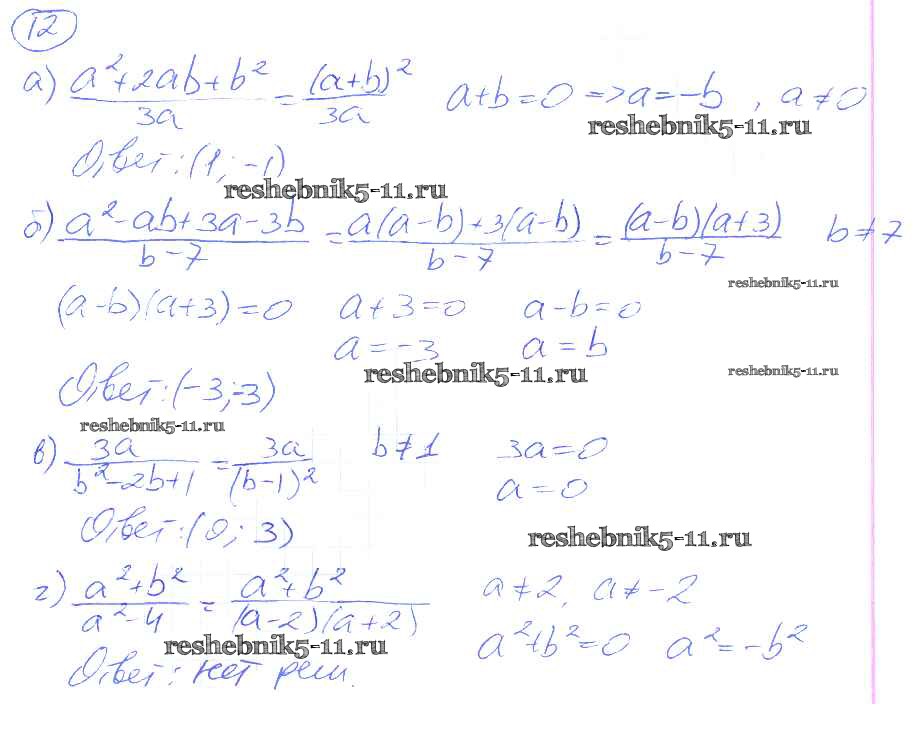 12
а) (a²+2ab+b²)/(3a) = (a+b)²/(3a)   a+b=0 => a=-b , a≠0
reshebnik5-11.ru
Ответ: (1; -1)
reshebnik5-11.ru
б) (a²-ab+3a-3b)/(b-7) = (a(a-b)+3(a-b))/(b-7) = ((a-b)(a+3))/(b-7)   b≠7
reshebnik5-11.ru
(a-b)(a+3)=0   a+3=0   a-b=0
a=-3   a=b
reshebnik5-11.ru   reshebnik5-11.ru
Ответ: (-3;-3)
reshebnik5-11.ru
в) 3a/(b²-2b+1) = 3a/(b-1)²   b≠1   3a=0
a=0
Ответ: (0; 3)
reshebnik5-11.ru
г) (a²+b²)/(a²-4) = (a²+b²)/((a-2)(a+2))   a≠2, a≠-2
a²+b²=0   a²=-b²
reshebnik5-11.ru
Ответ: нет реш.